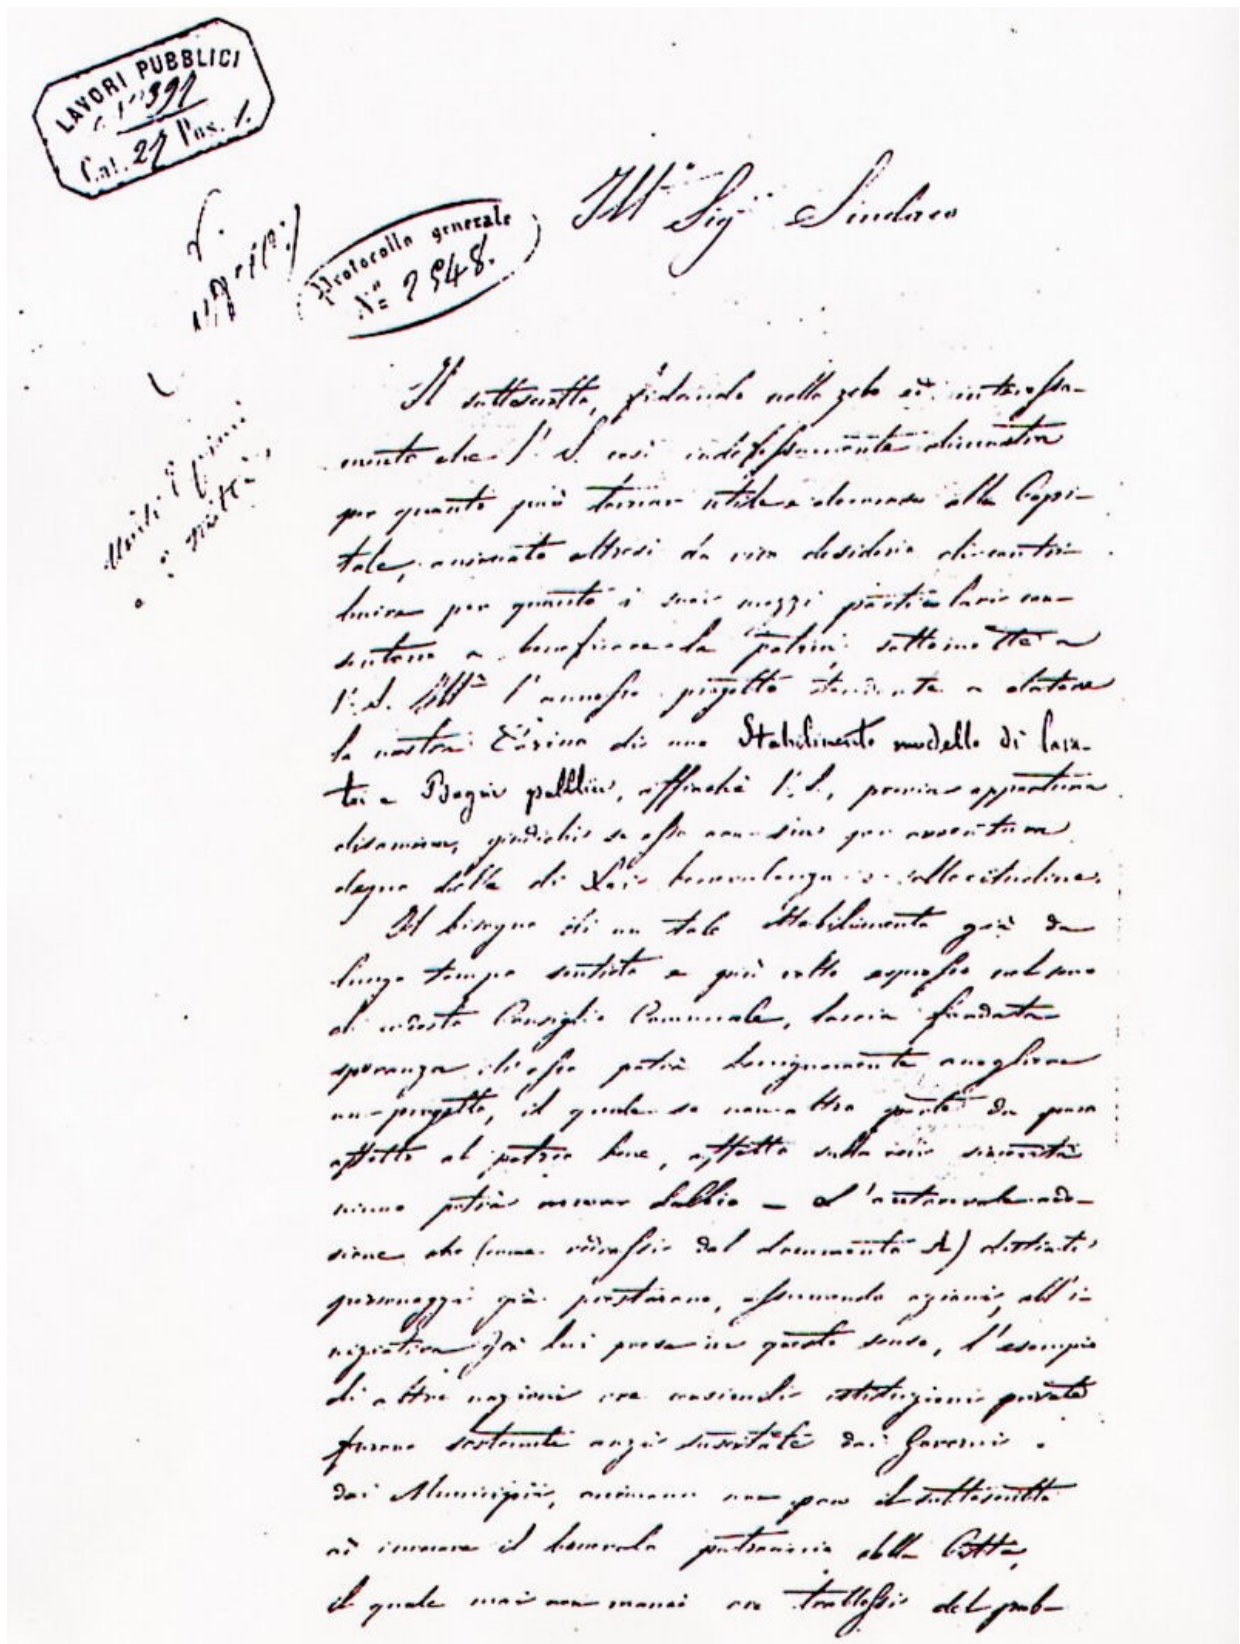 LAVORI PUBBLICI
391
Cat. 27 Pos. 1.
Protocollo generale
N.° 2548.
Ill.º Sig.r Sindaco
Il sottoscritto, fidando nello zelo ed interessa-
mento che V. S. così indefessamente dimostra
per quanto può tornar utile e decoroso alla Capi-
tale, animato altresì da vivo desiderio di contri-
buire per quanto i suoi mezzi particolari con-
sentono a beneficare la patria; sottomette a
V. S. Ill.ma l'annesso progetto tendente a dotare
la nostra Torino di uno Stabilimento modello di lava-
toi e Bagni pubblici, affinchè V. S., previa opportuna
disamina, giudichi se esso non sia per avventura
degno della di Lei benevolenza e sollecitudine.
Il bisogno di un tale stabilimento già da
lungo tempo sentito e più volte espresso nel seno
di codesto Consiglio Comunale, lascia fondata
speranza ch'esso potrà benignamente accogliere
un progetto, il quale se non altro parte da puro
affetto al patrio bene, affetto sulla cui sincerità
niuno potrà muover dubbio – L'autorevole ade-
sione che (come vedrassi dal documento A) distinti
personaggi già prestarono, assumendo azioni, all'i-
niziativa da lui presa in questo senso, l'esempio
di altre nazioni ove consimili istituzioni private
furono sostenute anzi suscitate dai Governi e
dai Municipii, animano non poco il sottoscritto
ad invocare il benevolo patrocinio della Città,
il quale mai non mancò ove trattossi del pub-